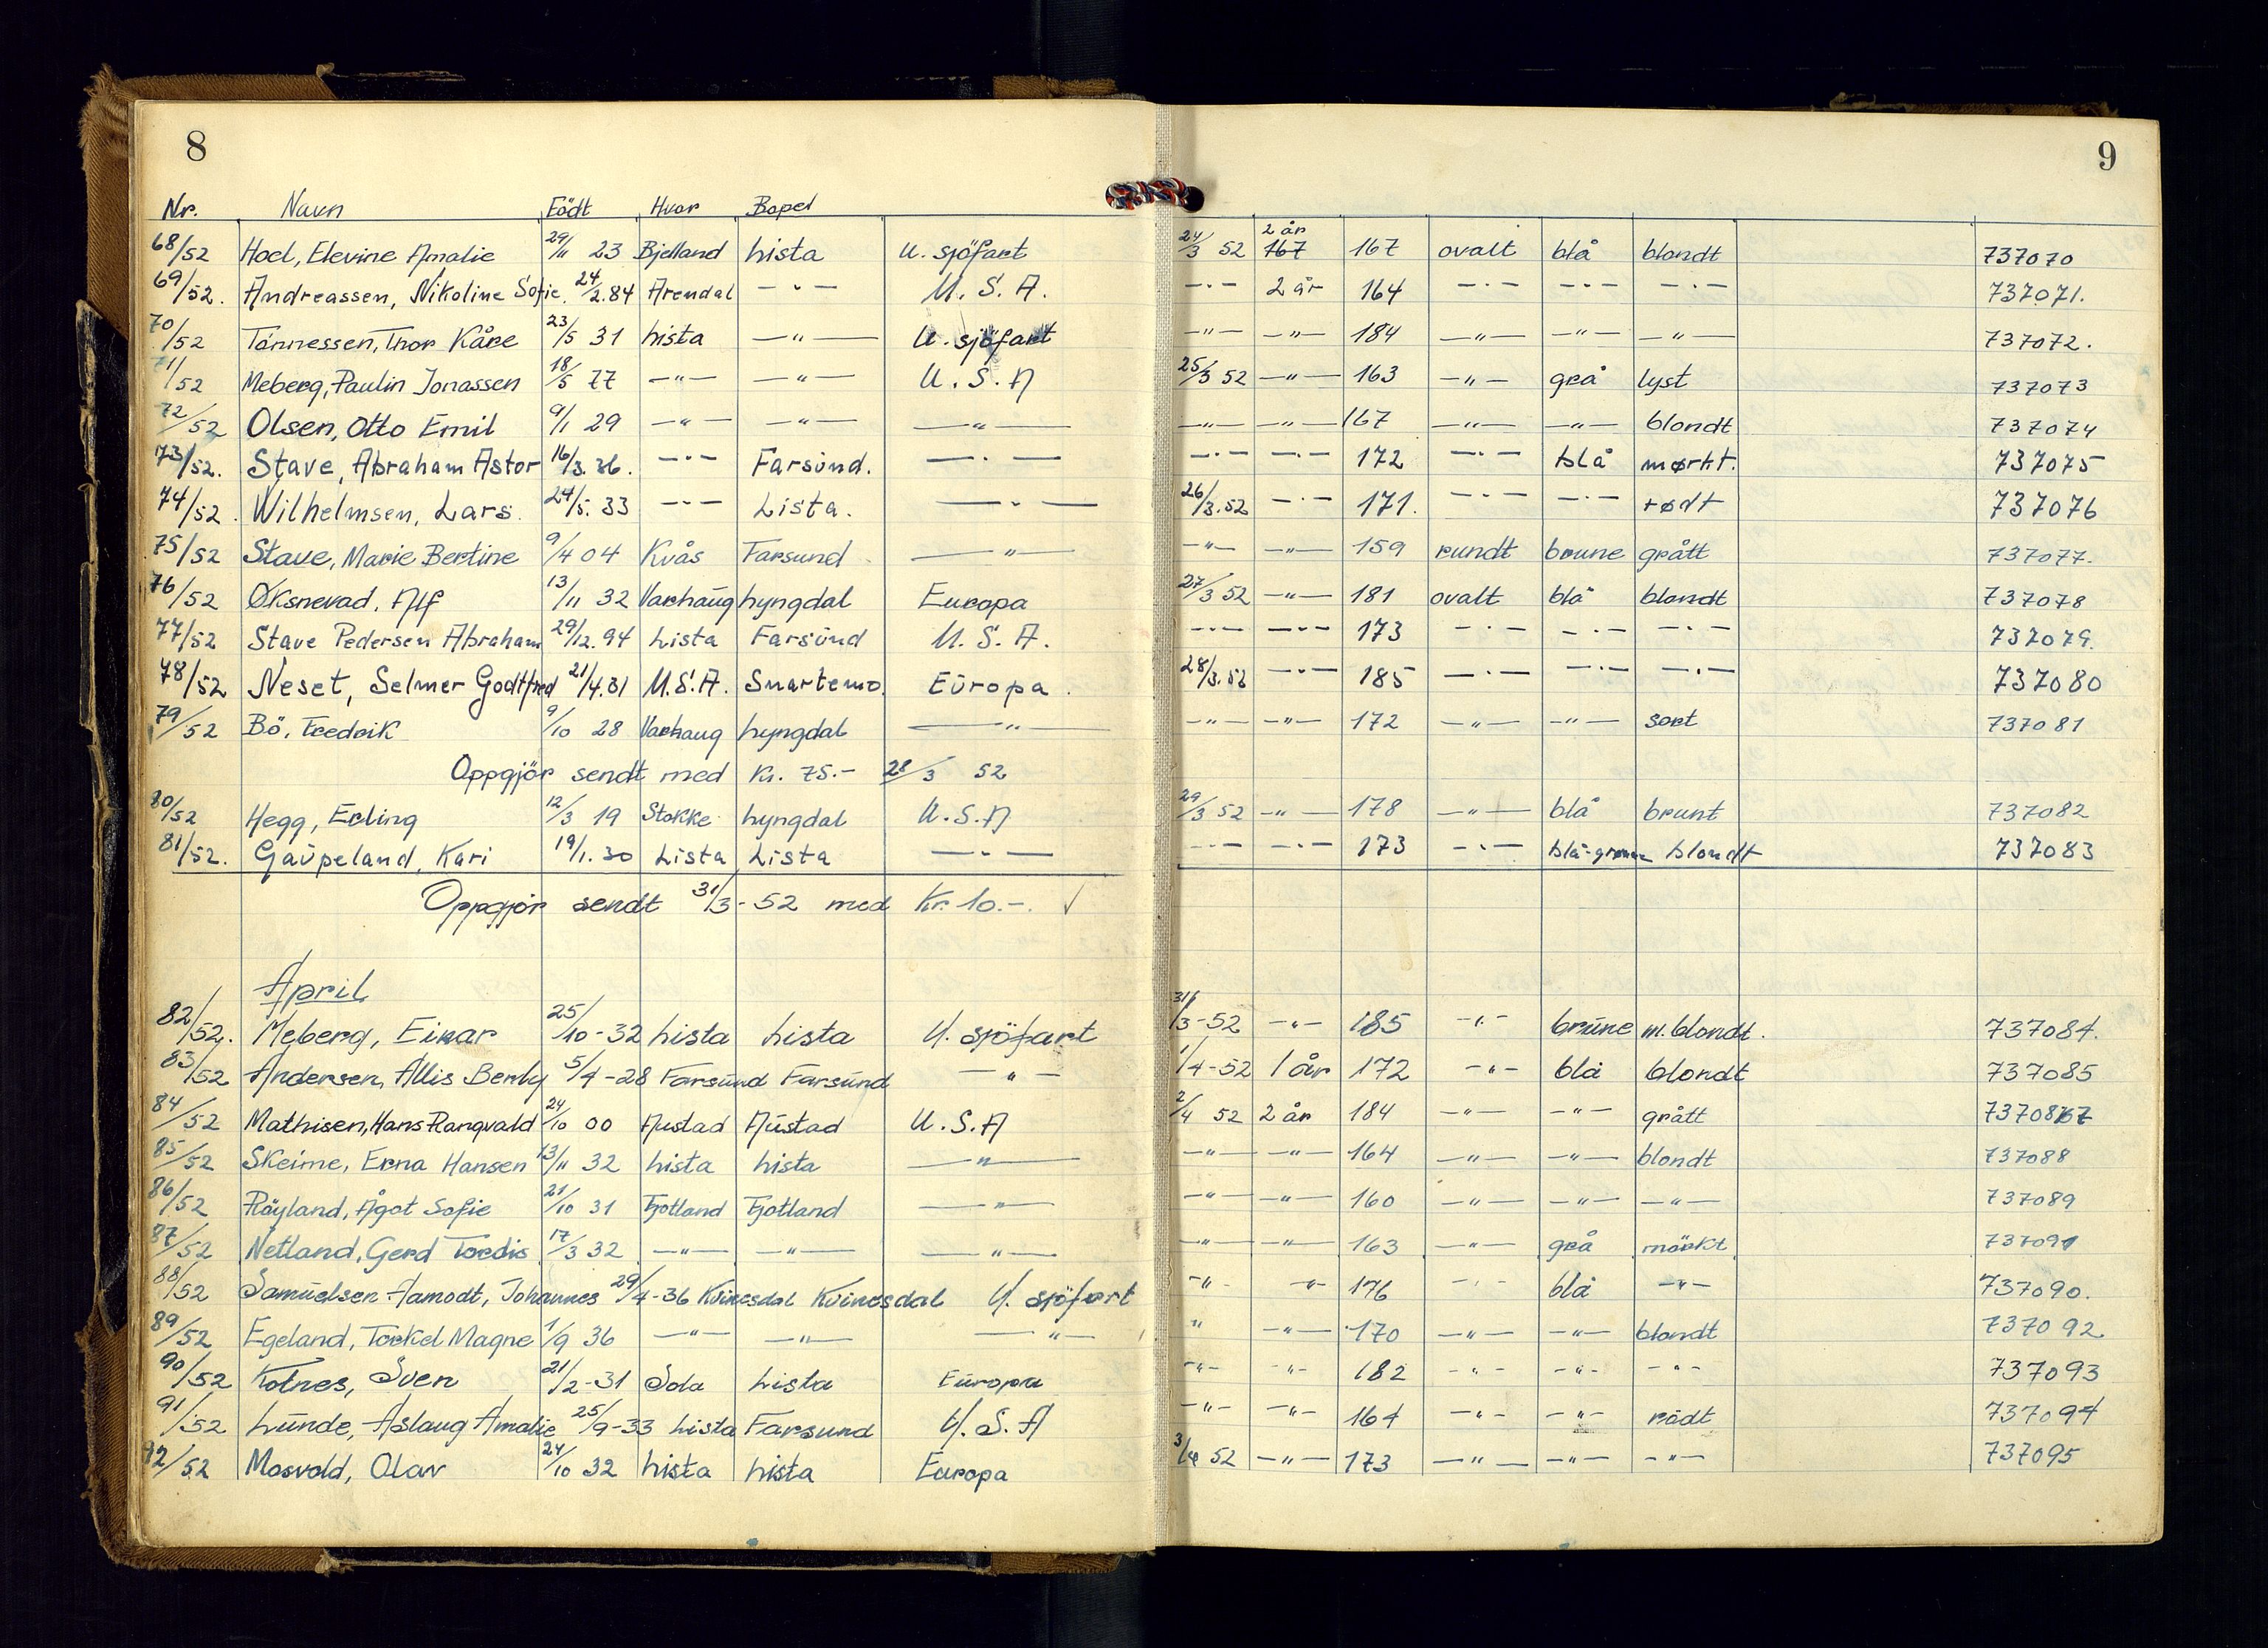 8
9
Nr. Navn Födt Hvor Bopel
68/52 Hoel, Elevine Amalie 29/11 23 Bjelland Lista U. sjöfart 24/3 52 2 år 167 167 ovalt blå blondt 737070
69/52. Andreassen, Nikoline Sofie. 24/2.84 Arendal —"— U. S. A. —"— 2 år 164 —"— —"— —"— 737071.
70/52 Tönnessen, Thor Kåre 23/5 31 Lista —"— U. sjöfart —"— —"— 184 —"— —"— —"— 737072.
71/52 Meberg, Paulin Jonassen 18/5 77 —"— —"— U. S. A 25/3 52 —"— 163 —"— grå lyst 737073
72/52 Olsen, Otto Emil 9/1 29 —"— —"— —"— —"— —"— 167 —"— —"— blondt 737074
73/52. Stave, Abraham Astor 16/3. 36. —"— Farsund. —"— —"— —"— 172 —"— blå mørkt. 737075
74/52. Wilhelmsen, Lars. 24/5. 33 —"— Lista. —"— 26/3.52 —"— 171. —"— —"— rødt 737076
75/52 Stave, Marie Bertine 9/4 04 Kvås Farsund —"— —"— —"— 159 rundt brune grått 737077.
76/52 Øksnevad, Alf 13/11 32 Varhaug Lyngdal Europa 27/3 52 —"— 181 ovalt blå blondt 737078
77/52 Stave Pedersen Abraham 29/12.94 Lista Farsund U. S. A. —"— —"— 173 —"— —"— —"— 737079.
78/52 Neset, Selmer Godtfred 21/4.31 U.S.A. Snartemo. Europa. 28/3.52 —"— 185 —"— —"— —"— 737080
79/52 Bö, Fredrik 9/10 28 Varhaug Lyngdal —"— —"— —"— 172 —"— —"— sort 737081
Oppgjör sendt med Kr. 75.- 28/3 52
80/52 Hegg, Erling 12/3 19 Stokke Lyngdal U.S.A 29/3 52 —"— 178 —"— blå brunt 737082
81/52. Gaupeland, Kari 19/1.30 Lista Lista —"— —"— —"— 173 —"— blå-grønn blondt 737083
Oppgjör sendt 31/3-52 med Kr. 10.-. ✓
April
82/52. Meberg, Einar 25/10-32 Lista Lista U. sjöfart 31/3-52 —"— 185 —"— brune m.blondt. 737084.
83/52 Andersen, Allis Benly 5/4-28 Farsund Farsund —"— 1/4-52 1 år 172 —"— blå blondt 737085
84/52 Mathisen, Hans Rangvald 24/10 00 Austad Austad U.S.A 2/4 52 2 år 184 —"— —"— grått 7370867
85/52 Skeime, Erna Hansen 13/11 32 Lista Lista —"— —"— —"— 164 —"— —"— blondt 737088
86/52 Röyland, Ågot Sofie 21/10 31 Fjotland Fjotland —"— —"— —"— 160 —"— —"— —"— 737089
87/52 Netland, Gerd Tordis 17/3 32 —"— —"— —"— —"— —"— 163 —"— grå mörkt 737091
88/52 Samuelsen Aamodt, Johannes 29/4-36 Kvinesdal Kvinesdal U. sjöfart —"— —"— 176 —"— blå —"— 737090.
89/52 Egeland, Torkel Magne 1/9 36 —"— —"— —"— " —"— 170 —"— —"— blondt 737092
90/52 Kolnes, Sven 21/2-31 Sola Lista Europa —"— —"— 182 —"— —"— —"— 737093
91/52 Lunde, Aslaug Amalie 25/9-33 Lista Farsund U.S.A —"— —"— 164 —"— —"— rödt 737094
92/52 Mosvold, Olav 24/10 32 Lista Lista Europa 3/4 52 —"— 173 —"— —"— —"— 737095